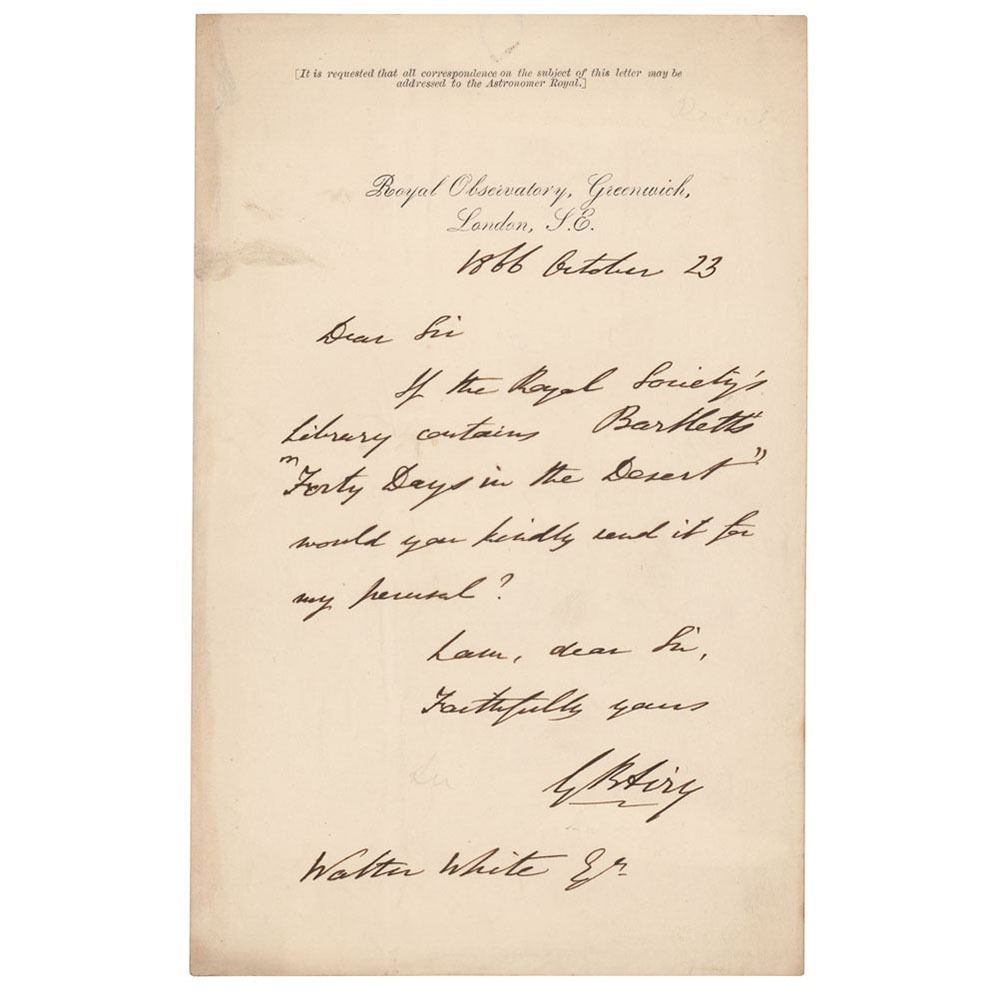 [It is requested that all correspondence on the subject of this letter may be
addressed to the Astronomer Royal.]
Royal Observatory, Greenwich,
London, S.E.
1866 October 23
Dear Sir
If the Royal Society's
Library contains Bartlett's
"Forty Days in the Desert"
would you kindly send it for
my perusal?
I am, dear Sir,
Faithfully yours
G B Airy
Walter White Esqr